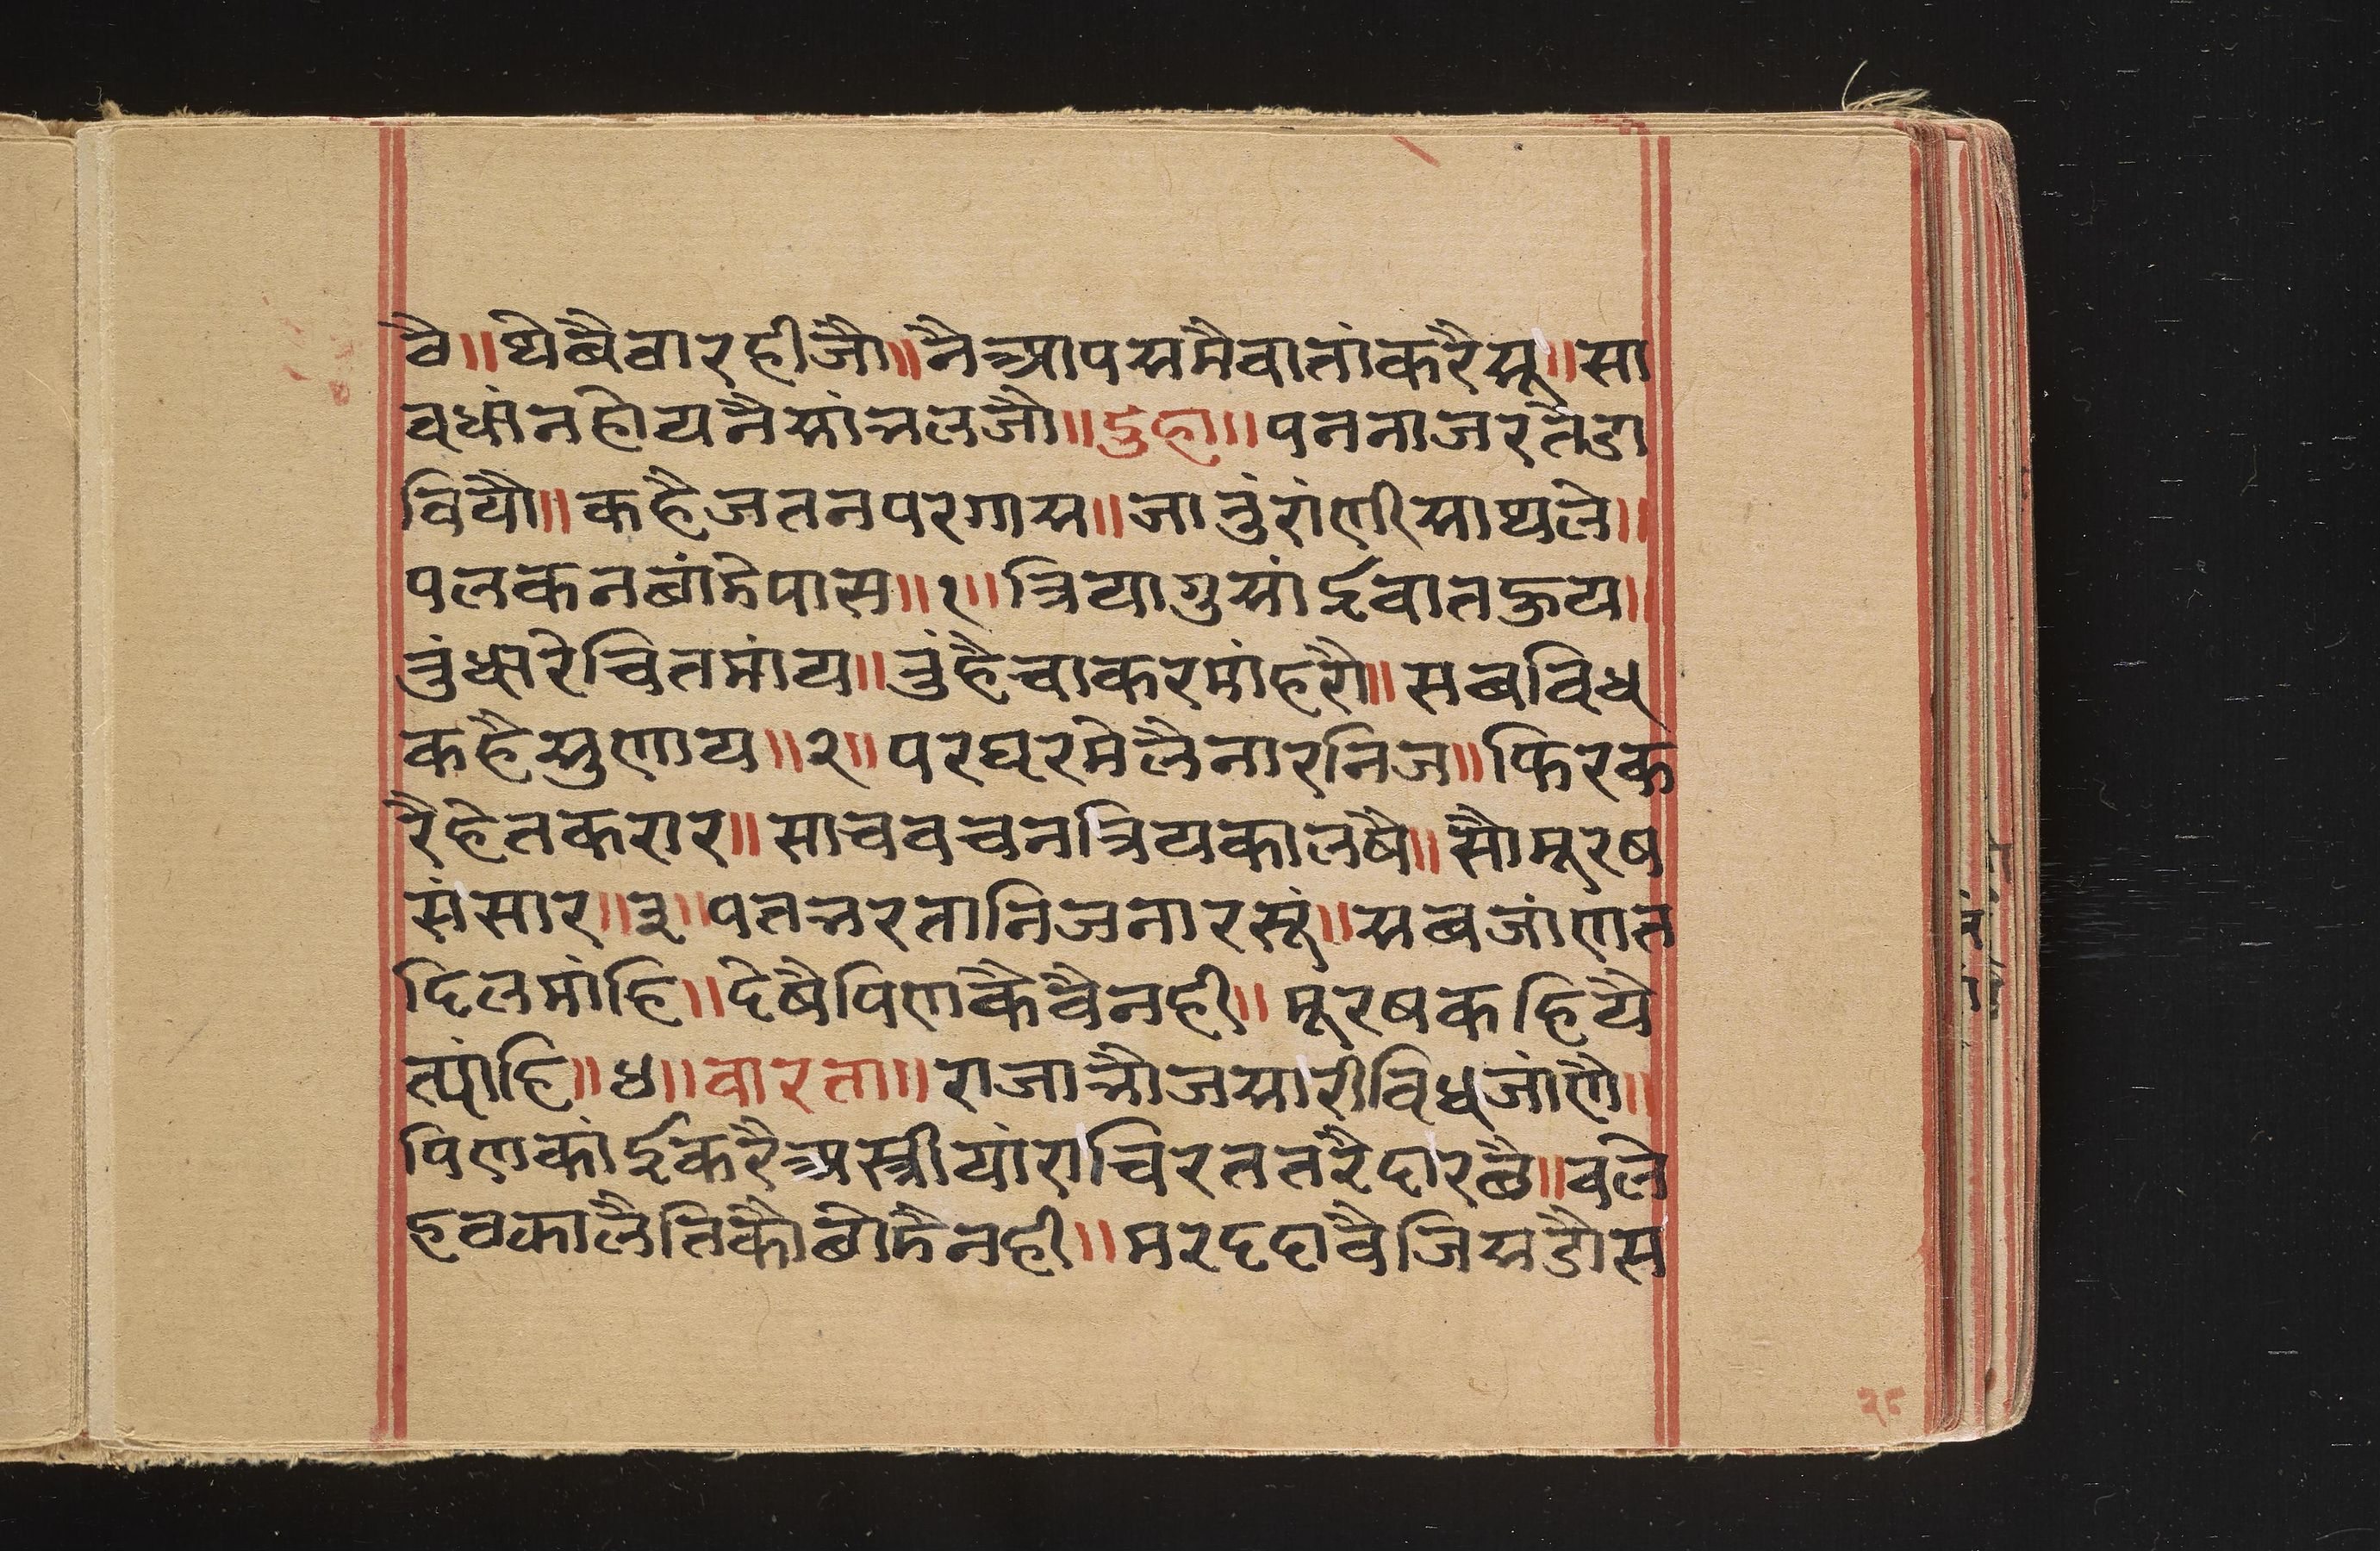 वै॥थेबैवारहीजौ॥नैआपसमैवातांकरैसू॥सा
वधांनहोयनैसांभलजौ॥दुहा॥पननाजरतेडा
वियौ॥कहैजतनपरगास॥जानुंरांणीसाथले॥
पलकनछांडेपास॥१॥त्रियागुसांईवातकुय॥
तुंधारेचितमांय॥तुंहैचाकरमांहरौ॥सबविध
कहैसुणाय॥२॥परघरमेलैनारनिज॥फिरक
रैहेतकरार॥साचवचनत्रियकालषै॥सौमूरष
संसार॥३॥पतभरतानिजनारसूं॥सबजांणत
दिलमांहि॥देषैपिणकैवैनही॥मूरषकहियै
त्यांहि॥४॥वारता॥राजाभौजसारीविधजांणै॥
पिणकांईकरैअस्त्रीयांराचिरततरैदारछै॥वले
हवकालैतिकौछोडैनही॥मरददावैजिसडौस
२८